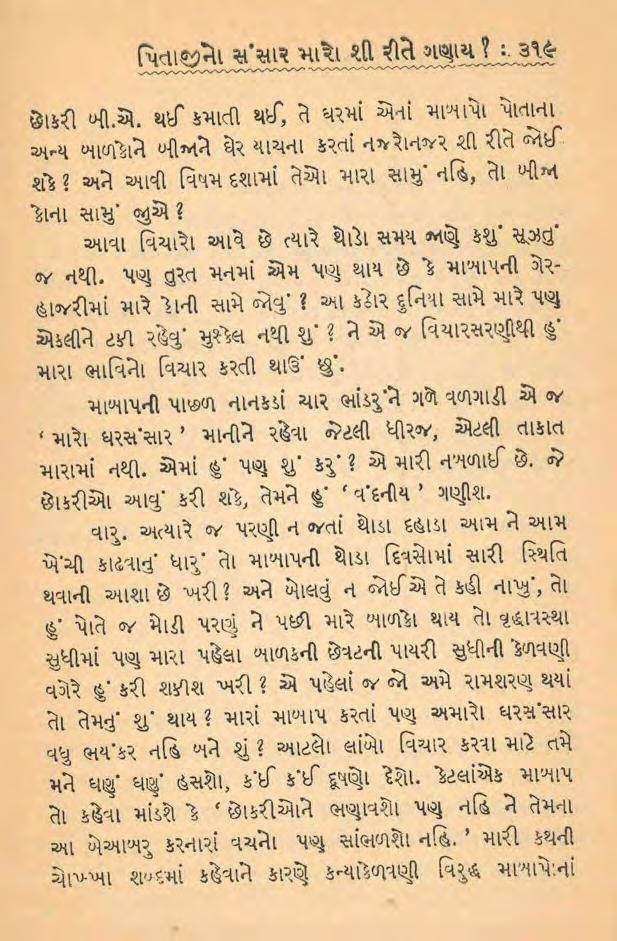 પિતાજીનો સંસાર મારો શી રીતે ગણાય ? : ૩૧૯
છોકરી બી.એ. થઈ કમાતી થઈ, તે ઘરમાં એનાં માબાપો પોતાના
અન્ય બાળકોને બીજાને ઘેર યાચના કરતાં નજરોનજર શી રીતે જોઈ
શકે ? અને આવી વિષમ દશામાં તેઓ મારા સામું નહિ, તો બીજા
કોના સામું જુએ ?
આવા વિચારો આવે છે ત્યારે થોડો સમય જાણે કશું સૂઝતું
જ નથી. પણ તુરત મનમાં એમ પણ થાય છે કે માબાપની ગેર-
હાજરીમાં મારે કોની સામે જોવું ? આ કઠોર દુનિયા સામે મારે પણ
એકલીને ટકી રહેવું મુશ્કેલ નથી શું ? ને એ જ વિચારસરણીથી હું
મારા ભાવિનો વિચાર કરતી થાઉં છું.
માબાપની પાછળ નાનકડાં ચાર ભાંડરુંને ગળે વળગાડી એ જ
‘ મારો ઘરસંસાર ’ માનીને રહેવા જેટલી ધીરજ, એટલી તાકાત
મારામાં નથી. એમાં હું પણ શું કરું ? એ મારી નબળાઈ છે. જે
છોકરીઓ આવું કરી શકે, તેમને હું ‘ વંદનીય ’ ગણીશ.
વારુ. અત્યારે જ પરણી ન જતાં થોડા દહાડા આમ ને આમ
ખેંચી કાઢવાનું ધારું તો માબાપની થોડા દિવસોમાં સારી સ્થિતિ
થવાની આશા છે ખરી ? અને બોલવું ન જોઈએ તે કહી નાખું, તો
હું પોતે જ મોડી પરણું ને પછી મારે બાળકો થાય તો વૃદ્ધાવસ્થા
સુધીમાં પણ મારા પહેલા બાળકની છેવટની પાયરી સુધીની કેળવણી
વગેરે હું કરી શકીશ ખરી ? એ પહેલાં જ જો અમે રામશરણ થયાં
તો તેમનું શું થાય ? મારાં માબાપ કરતાં પણ અમારો ઘરસંસાર
વધુ ભયંકર નહિ બને શું ? આટલો લાંબો વિચાર કરવા માટે તમે
મને ઘણું ઘણું હસશો, કંઈ કંઈ દૂષણો દેશો. કેટલાંએક માબાપ
તો કહેવા માંડશે કે ‘ છોકરીઓને ભણાવશો પણ નહિ ને તેમના
આ બેઆબરુ કરનારાં વચનો પણ સાંભળશો નહિ. ’ મારી કથની
ચોખ્ખા શબ્દમાં કહેવાને કારણે કન્યાકેળવણી વિરુદ્ધ માબાપોનાં